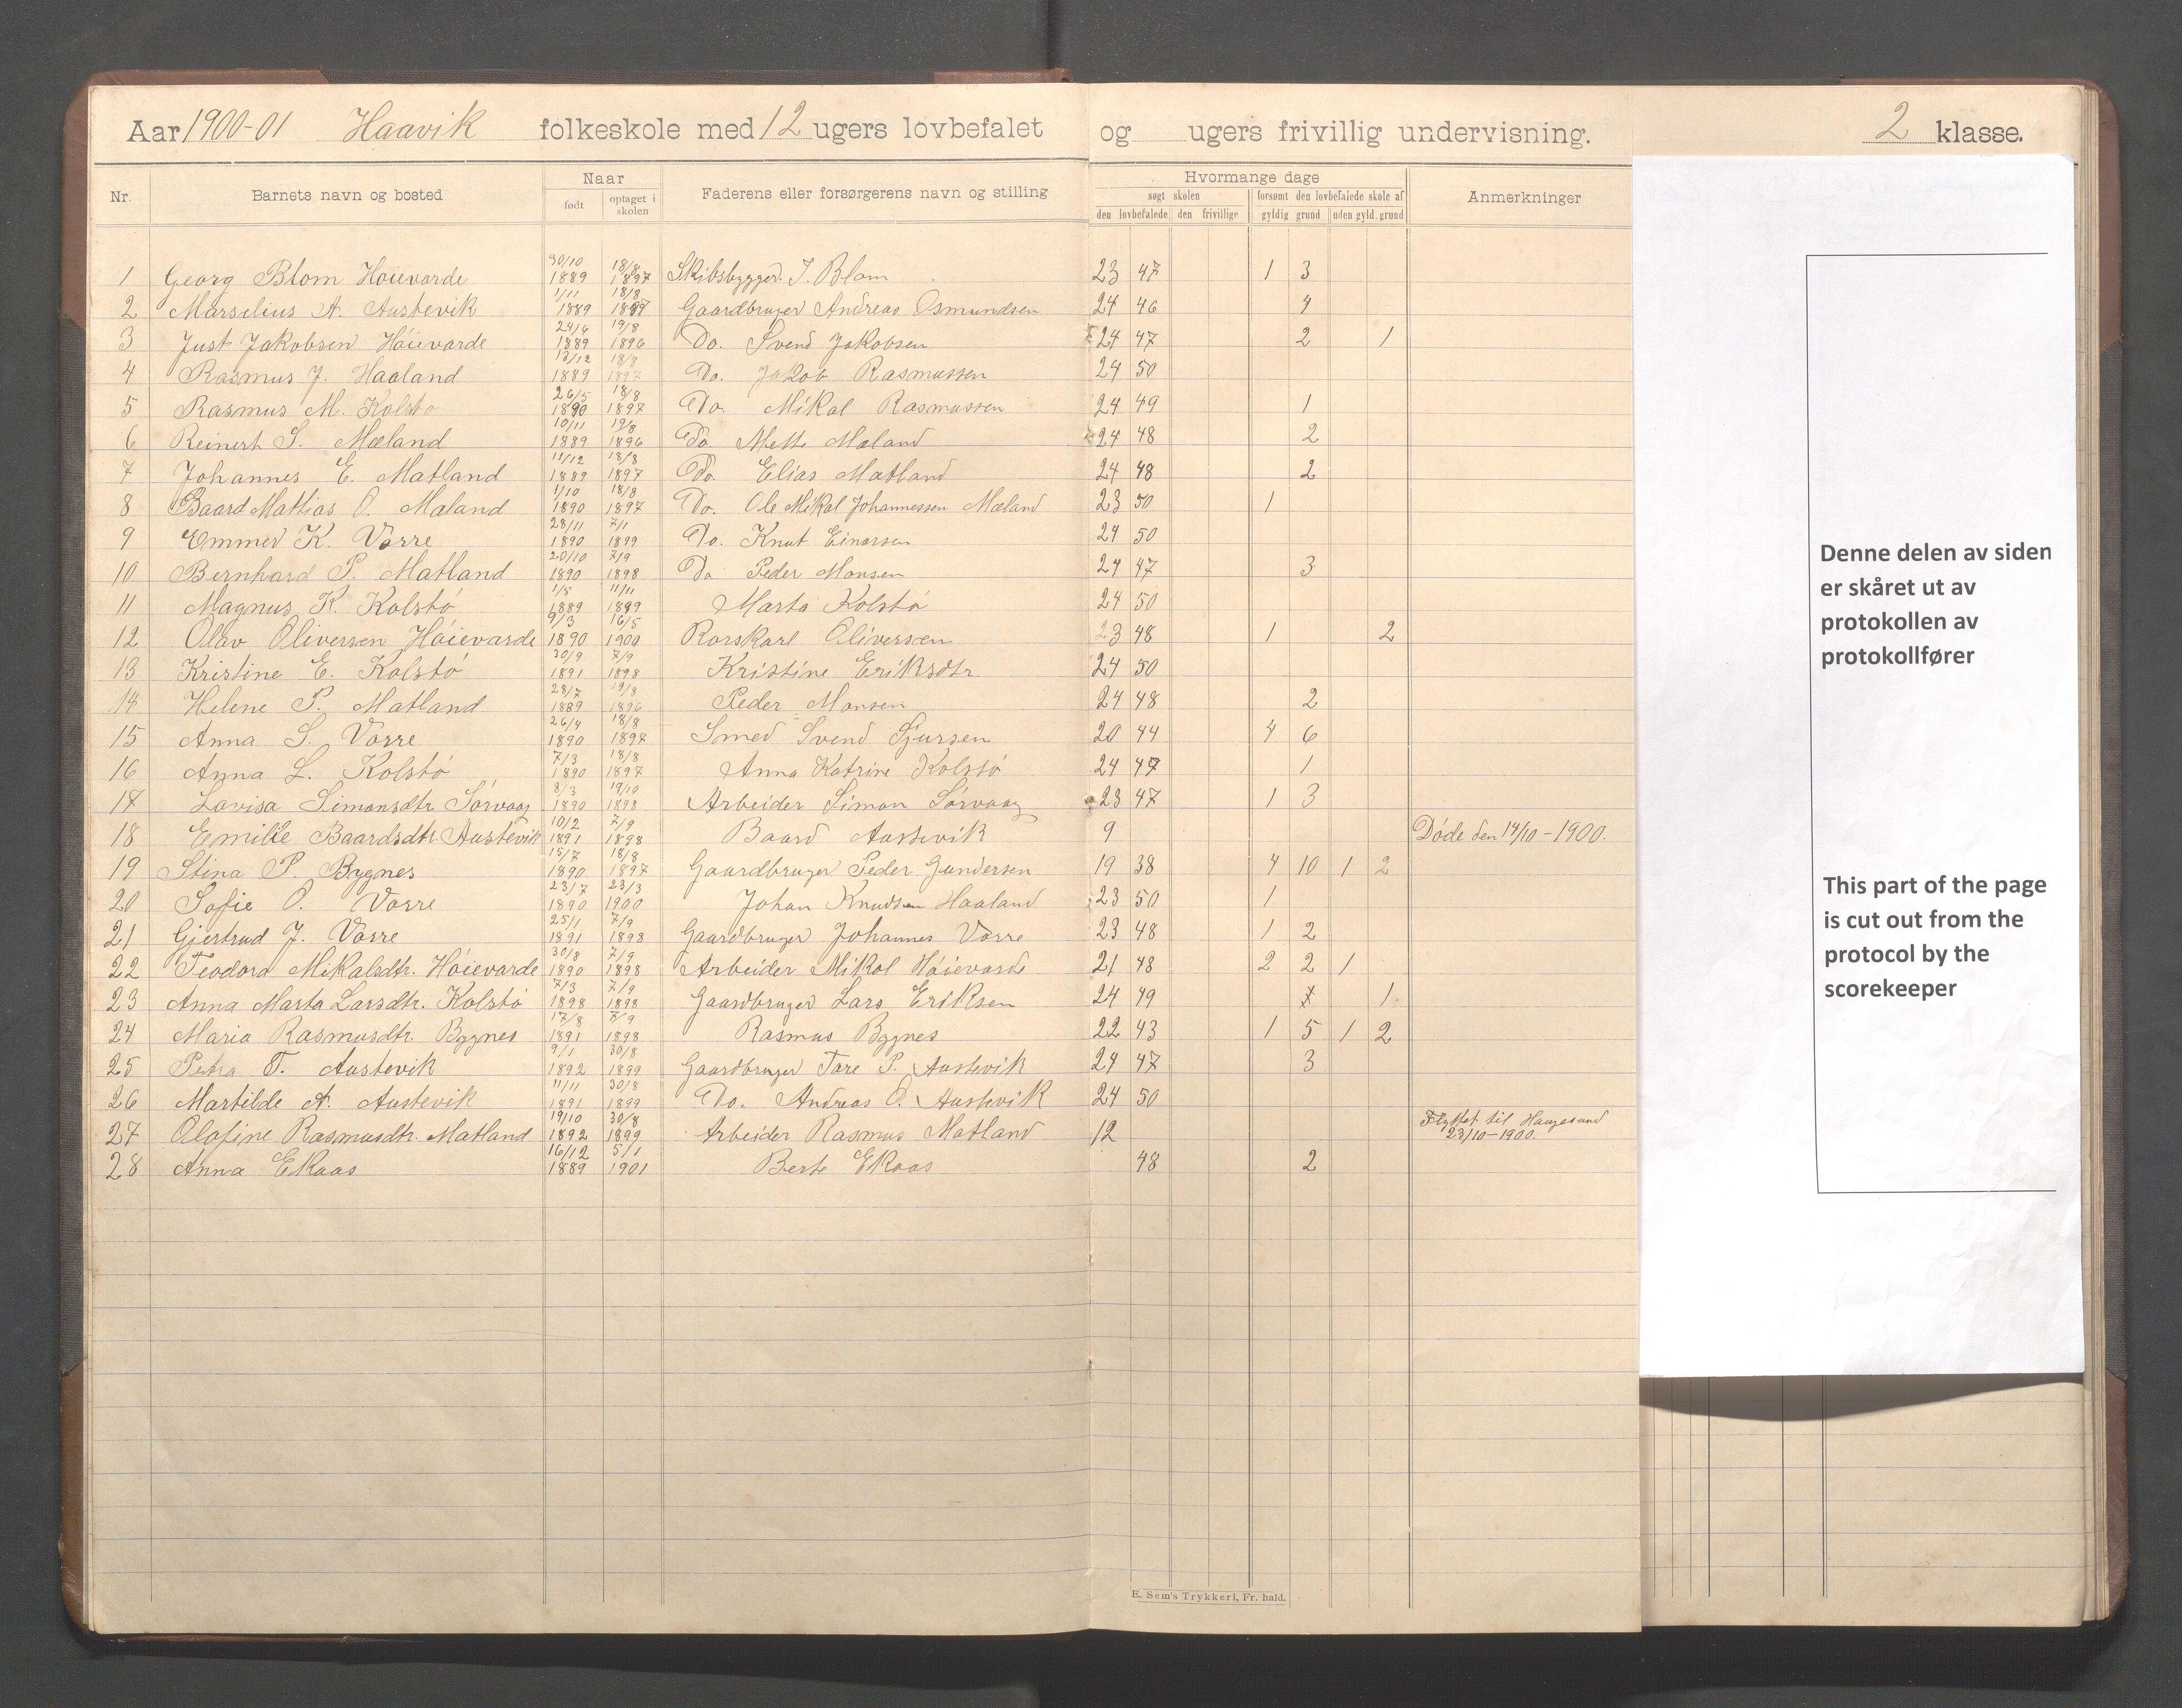 Aar 1900-01 Haavik folkeskole med 12 ugers lovbefalet og ugers frivillig undervisning. 2 klasse.
Nr. Barnets navn og bosted Naar født optaget i skolen Faderens eller forsørgerens navn og stilling Hvormange dage søgt skolen den lovbefalede den frivillige forsømt den lovbefalede skole af gyldig grund uden gyld. grund Anmerkninger
1 Georg Blom Høievarde 30/10 1889 18/8 1897 Skibsbygger J. Blom 23 47 1 3
2 Marselius A. Austevik 1/11 1889 18/8 1897 Gaardbruger Andreas Osmundsen 24 46 4
3 Just Jakobsen Høievarde 24/6 1889 19/8 1896 Do. Svend Jakobsen 24 47 2 1
4 Rasmus J. Haaland 13/12 1889 18/8 1897 Do. Jakob Rasmussen 24 50
5 Rasmus M. Kolstø 26/5 1890 18/8 1897 Do. Mikal Rasmussen 24 49 1
6 Reinert S. Mæland 10/11 1889 19/8 1896 Do. Mette Mæland 24 48 2
7 Johannes E. Matland 11/12 1889 18/8 1897 Do. Elias Matland 24 48 2
8 Baard Mattias O. Mæland 1/10 1890 18/8 1897 Do. Ole Mikal Johannessen Mæland 23 50 1
9 Emmed K. Vorre 28/11 1890 7/1 1899 Do. Knut Einarsen 24 50
10 Bernhard P. Matland 20/10 1890 7/9 1898 Do Peder Monsen 24 47 3
11 Magnus K. Kolstø 1/5 1889 11/11 1899 Marta Kolstø 24 50
12 Olav Oliversen Høievarde 9/3 1890 16/5 1900 Rorskarl Oliversen 23 48 1 2
13 Kristine E. Kolstø 30/9 1891 7/9 1898 Kristine Eriksdtr 24 50
14 Helene P. Matland 28/7 1889 19/8 1896 Peder Monsen 24 48 2
15 Anna S. Vorre 26/4 1890 18/8 1897 Smed Svend Sjursen 20 44 4 6
16 Anna L. Kolstø 7/3 1890 18/8 1897 Anna Katrine Kolstø 24 47 1
17 Lovisa Simonsdtr Sørvaag 8/3 1890 19/10 1898 Arbeider Simon Sørvaag 23 47 1 3
18 Emilie Baardsdtr. Austevik 10/2 1891 7/9 1898 Baard Austevik 9 Døde den 14/10 - 1900.
19 Stina P. Bygnes 15/7 1890 18/8 1897 Gaardbruger Peder Gundersen 19 38 4 10 1 2
20 Sofie O. Vorre 23/7 1890 23/3 1900 Johan Knudsen Haaland 23 50 1
21 Gjertrud J. Vorre 25/1 1891 7/9 1898 Gaardbruger Johannes Vorre 23 48 1 2
22 Teodora Mikalsdtr. Høievarde 30/8 1890 7/9 1898 Arbeider Mikal Høievarde 21 48 2 2 1
23 Anna Marta Larsdtr. Kolstø 7/3 1898 7/9 1898 Gaardbruger Lars Eriksen 24 49 1
24 Maria Rasmusdtr. Bygnes 17/8 1891 7/9 1898 Rasmus Bygnes 22 43 1 5 1 2
25 Petra T. Austevik 9/1 1892 30/8 1899 Gaardbruger Tore P. Austevik 24 47 3
26 Martilde A. Austevik 11/11 1891 30/8 1899 Do. Andreas O. Austevik 24 50
27 Olofine Rasmusdtr. Matland 19/10 1892 30/8 1899 Arbeider Rasmus Matland 12 Flyttet til Haugesund 23/10-1900.
28 Anna Ekaas 16/12 1889 5/1 1901 Berte Ekaas 48 2
E. Sem's Trykkeri, Fr. hald.
Denne delen av siden
er skåret ut av
protokollen av
protokollfører
This part of the page
is cut out from the
protocol by the
scorekeeper